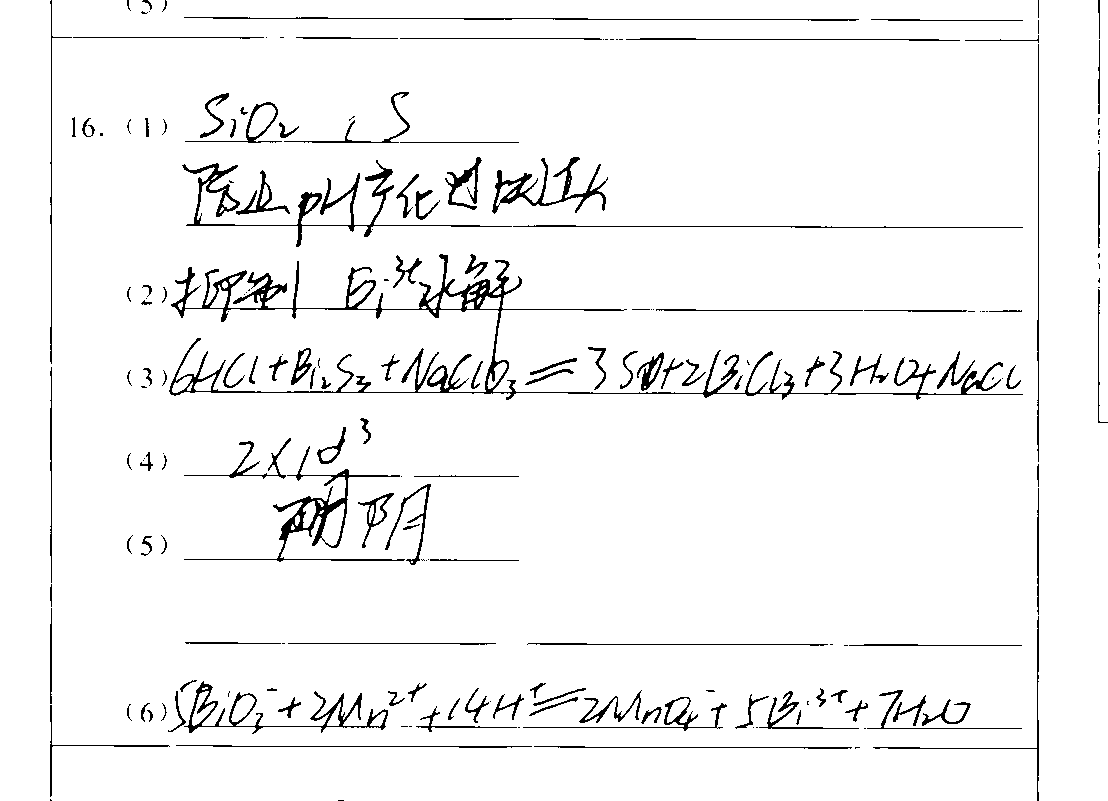 (5)
16. (1) SiO₂ , S
防止pH变化过快过大
(2) 抑制 Bi³⁺水解
(3) 6HCl+Bi₂S₃+NaClO₃=3S+2BiCl₃+3H₂O+NaCl
(4) 2×10³
(5) 阴
(6) 5BiO₃⁻+2Mn²⁺+14H⁺=2MnO₄⁻+5Bi³⁺+7H₂O